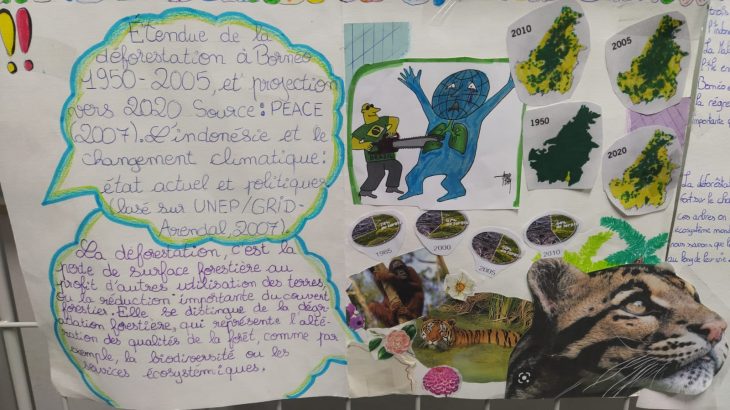 Étendue de la
déforestation à Bornéo
1950-2005, et projection
vers 2020 Source: PEACE
(2007). L'indonésie et le
changement climatique:
état actuel et politiques
(basé sur UNEP/GRID-
Arendal, 2007).
La déforestation, c'est la
perte de surface forestière au
profit d'autres utilisation des terres
ou la réduction importante du couvert
forestier. Elle se distingue de la dégr-
adation forestière, qui représente l'alté-
ration des qualités de la forêt, comme par
exemple, la biodiversité ou les
services écosystémiques.
2010
2005
1950
2020
BRAZIL
1985
2000
2005
2010
trois
l'Indon
La Mal
Bornéo e
la régre
importante p
La déforestat
fort sur le cha
ces arbres en
écosystème mond
nous savons que l
au long de leur vie